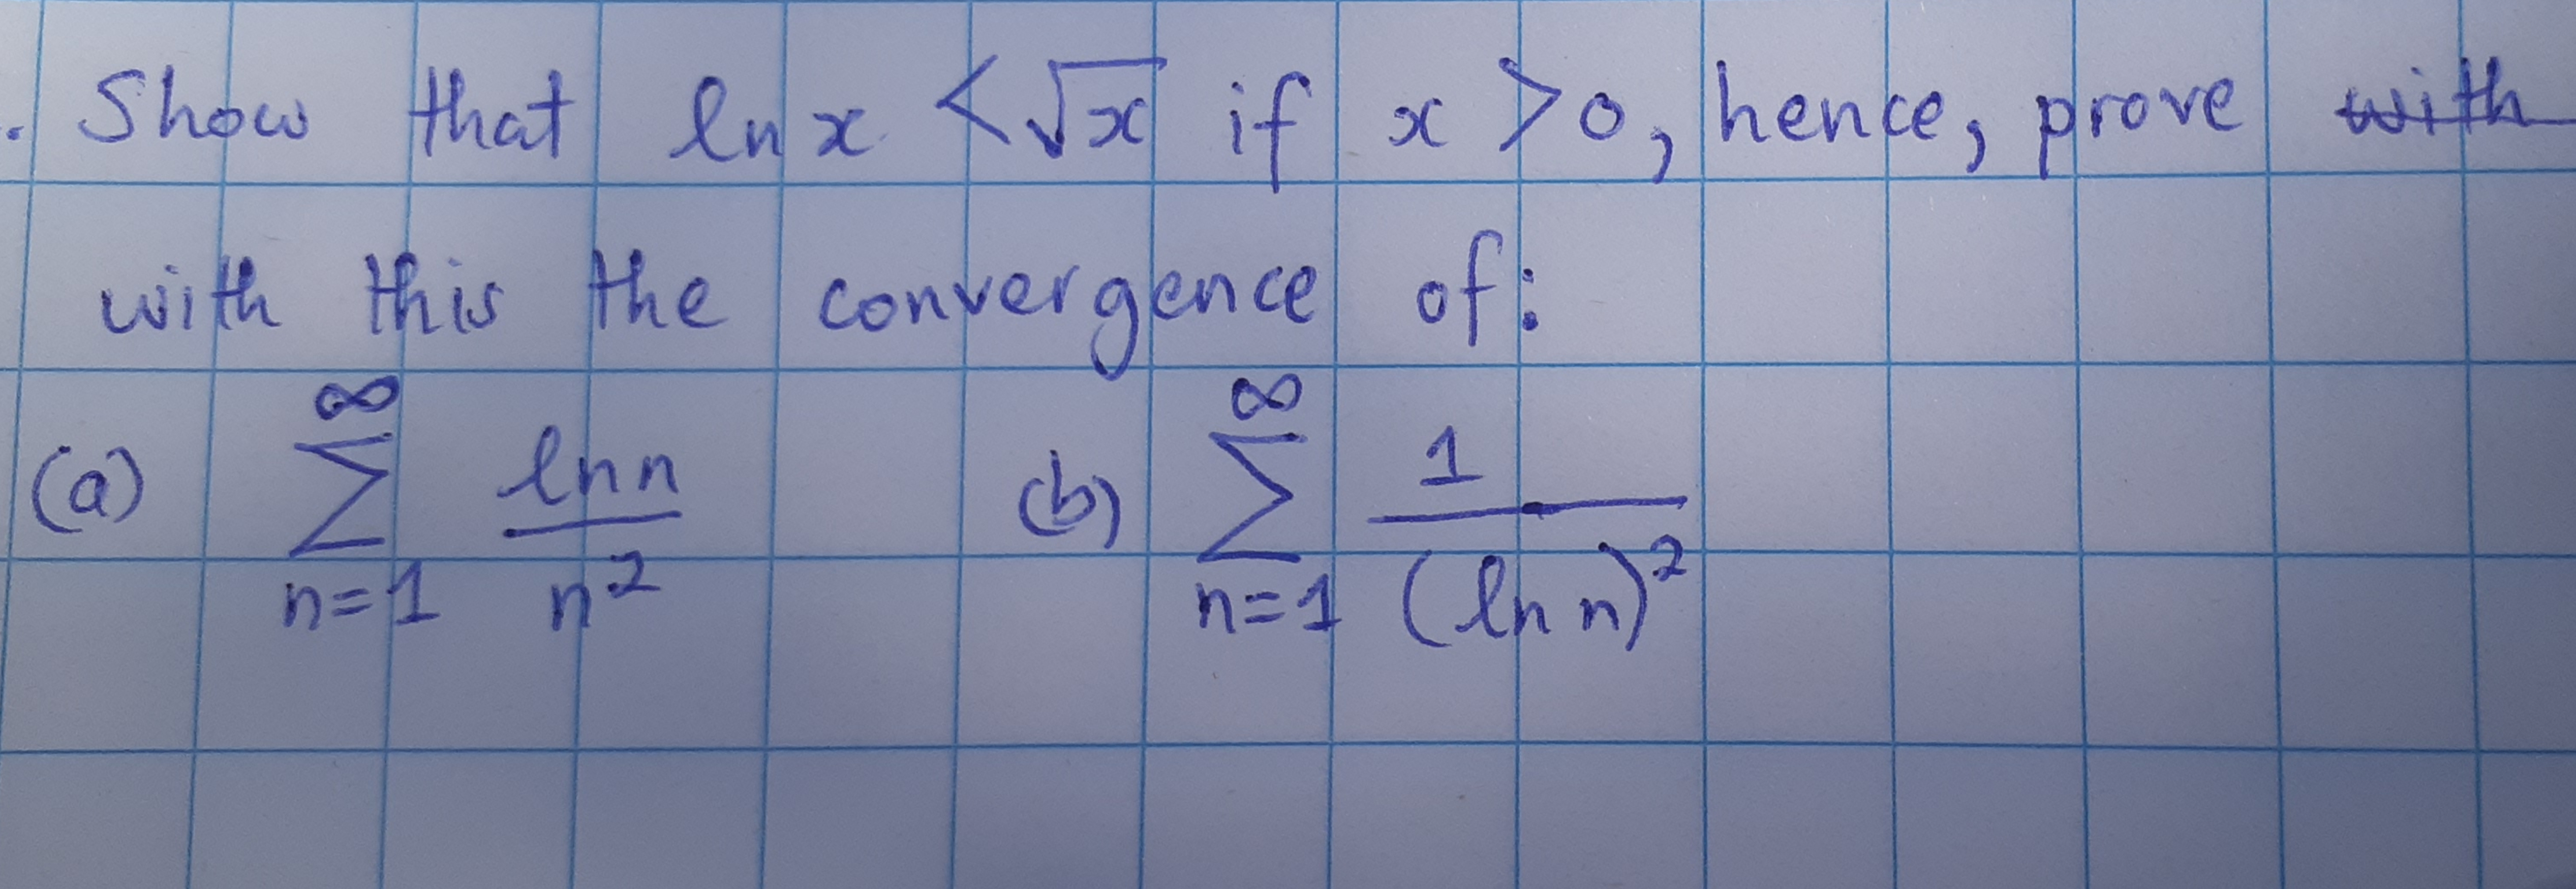 . Show that ln x < √x if x > 0, hence, prove with
with this the convergence of:
(a) ∞ ∑ n=1 ln n / n² (b) ∞ ∑ n=1 1 / (ln n)²